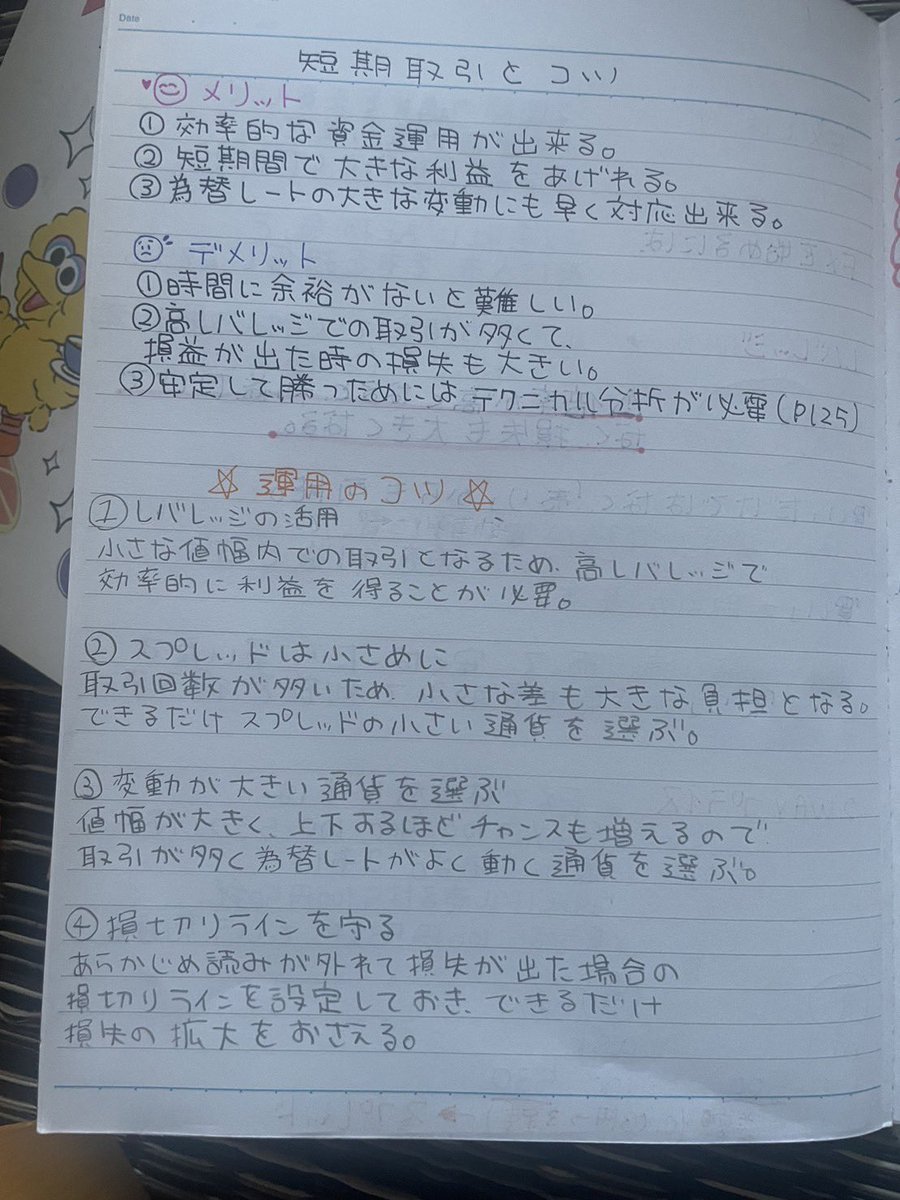 Date
短期取引とコツ
メリット
① 効率的な資金運用が出来る。
② 短期間で大きな利益をあげれる。
③ 為替レートの大きな変動にも早く対応出来る。
デメリット
①時間に余裕がないと難しい。
②高レバレッジでの取引が多くて、
損益が出た時の損失も大きい。
③安定して勝つためにはテクニカル分析が必要(P125)
運用のコツ
① レバレッジの活用
小さな値幅内での取引となるため、高レバレッジで
効率的に利益を得ることが必要。
② スプレッドは小さめに
取引回数が多いため、小さな差も大きな負担となる。
できるだけスプレッドの小さい通貨を選ぶ。
③ 変動が大きい通貨を選ぶ
値幅が大きく、上下するほどチャンスも増えるので
取引が多く為替レートがよく動く通貨を選ぶ。
④ 損切りラインを守る
あらかじめ読みが外れて損失が出た場合の
損切りラインを設定しておき、できるだけ
損失の拡大をおさえる。